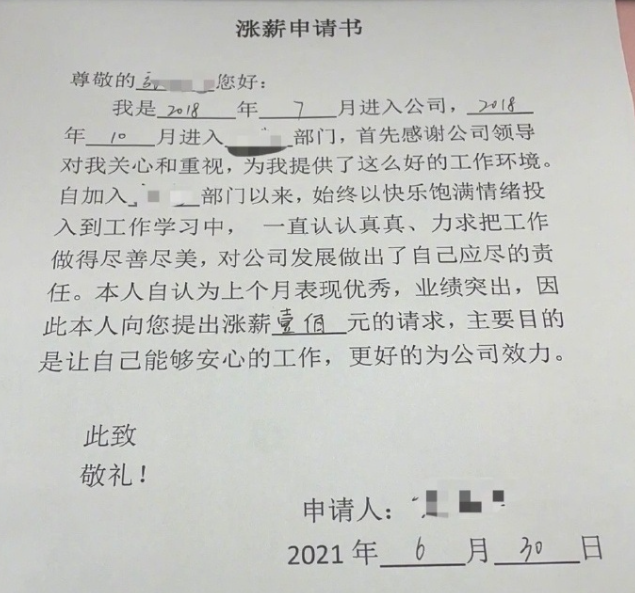 涨薪申请书
尊敬的 您好：
我是 2018 年 7 月进入公司，2018
年 10 月进入 部门，首先感谢公司领导
对我关心和重视，为我提供了这么好的工作环境。
自加入 部门以来，始终以快乐饱满情绪投
入到工作学习中， 一直认认真真、力求把工作
做得尽善尽美，对公司发展做出了自己应尽的责
任。本人自认为上个月表现优秀，业绩突出，因
此本人向您提出涨薪壹佰 元的请求，主要目的
是让自己能够安心的工作，更好的为公司效力。
此致
敬礼！
申请人：
2021 年 6 月 30 日